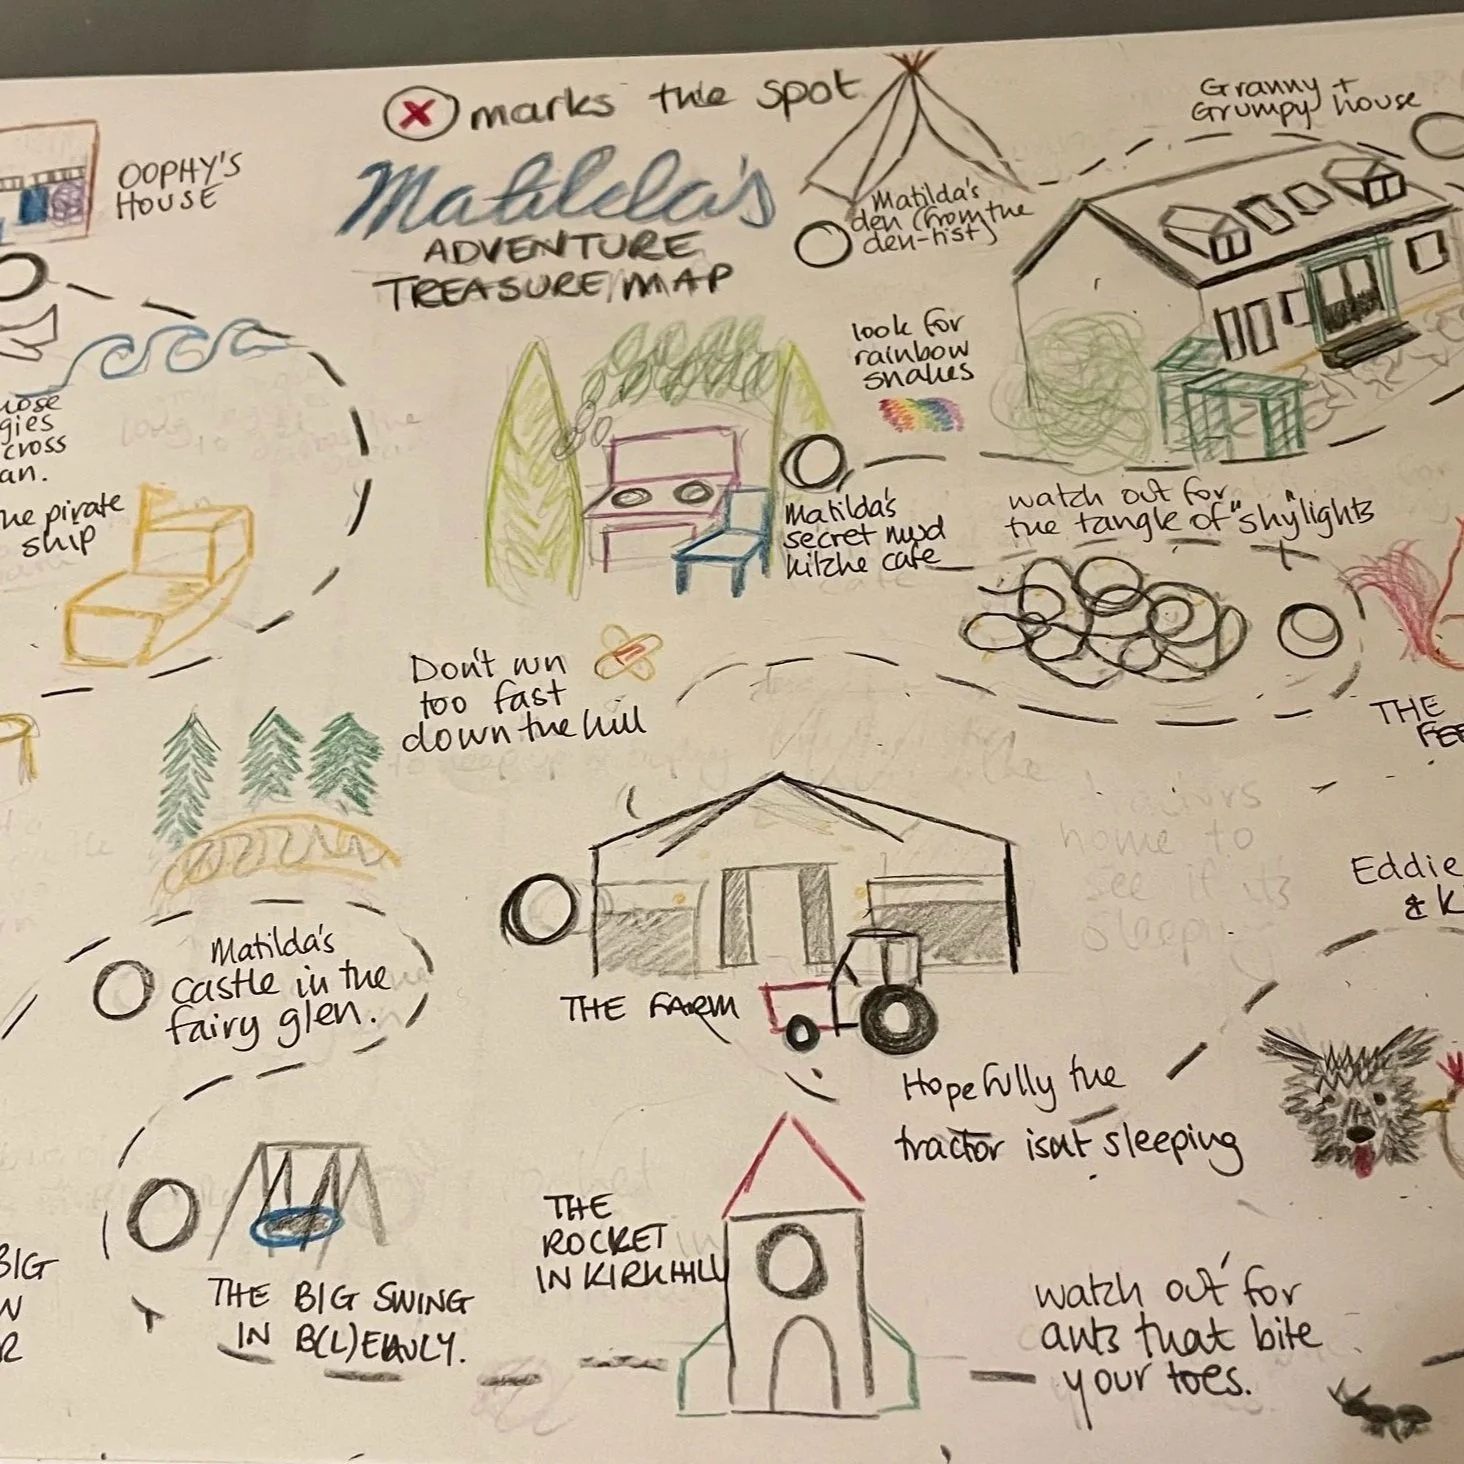 X marks the spot
Matilda's
ADVENTURE
TREASURE MAP
OOPHY'S
HOUSE
Matilda's
den (from the
den-tist)
Granny +
Grumpy house
look for
rainbow
snakes
cross
pirate
ship
Matilda's
secret mud
kitche cafe
watch out for
the tangle of "shy"lights
Don't run
too fast
down the hill
THE
Matilda's
castle in the
fairy glen.
THE FARM
Eddie
&
Hopefully the
tractor isnt sleeping
THE BIG SWING
IN B(L)EAULY.
THE
ROCKET
IN KIRKHILL
BIG
watch out for
ants that bite
your toes.